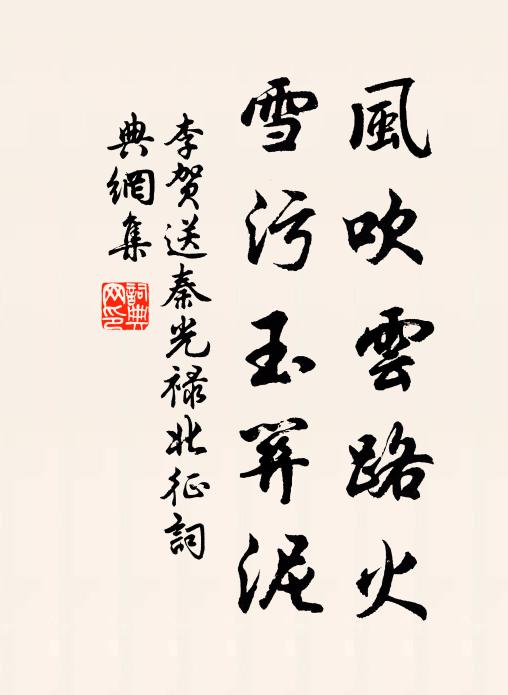 風吹雲路火
雪污玉關泥
李賀送秦光禄北征詞
典網集
詞典網印